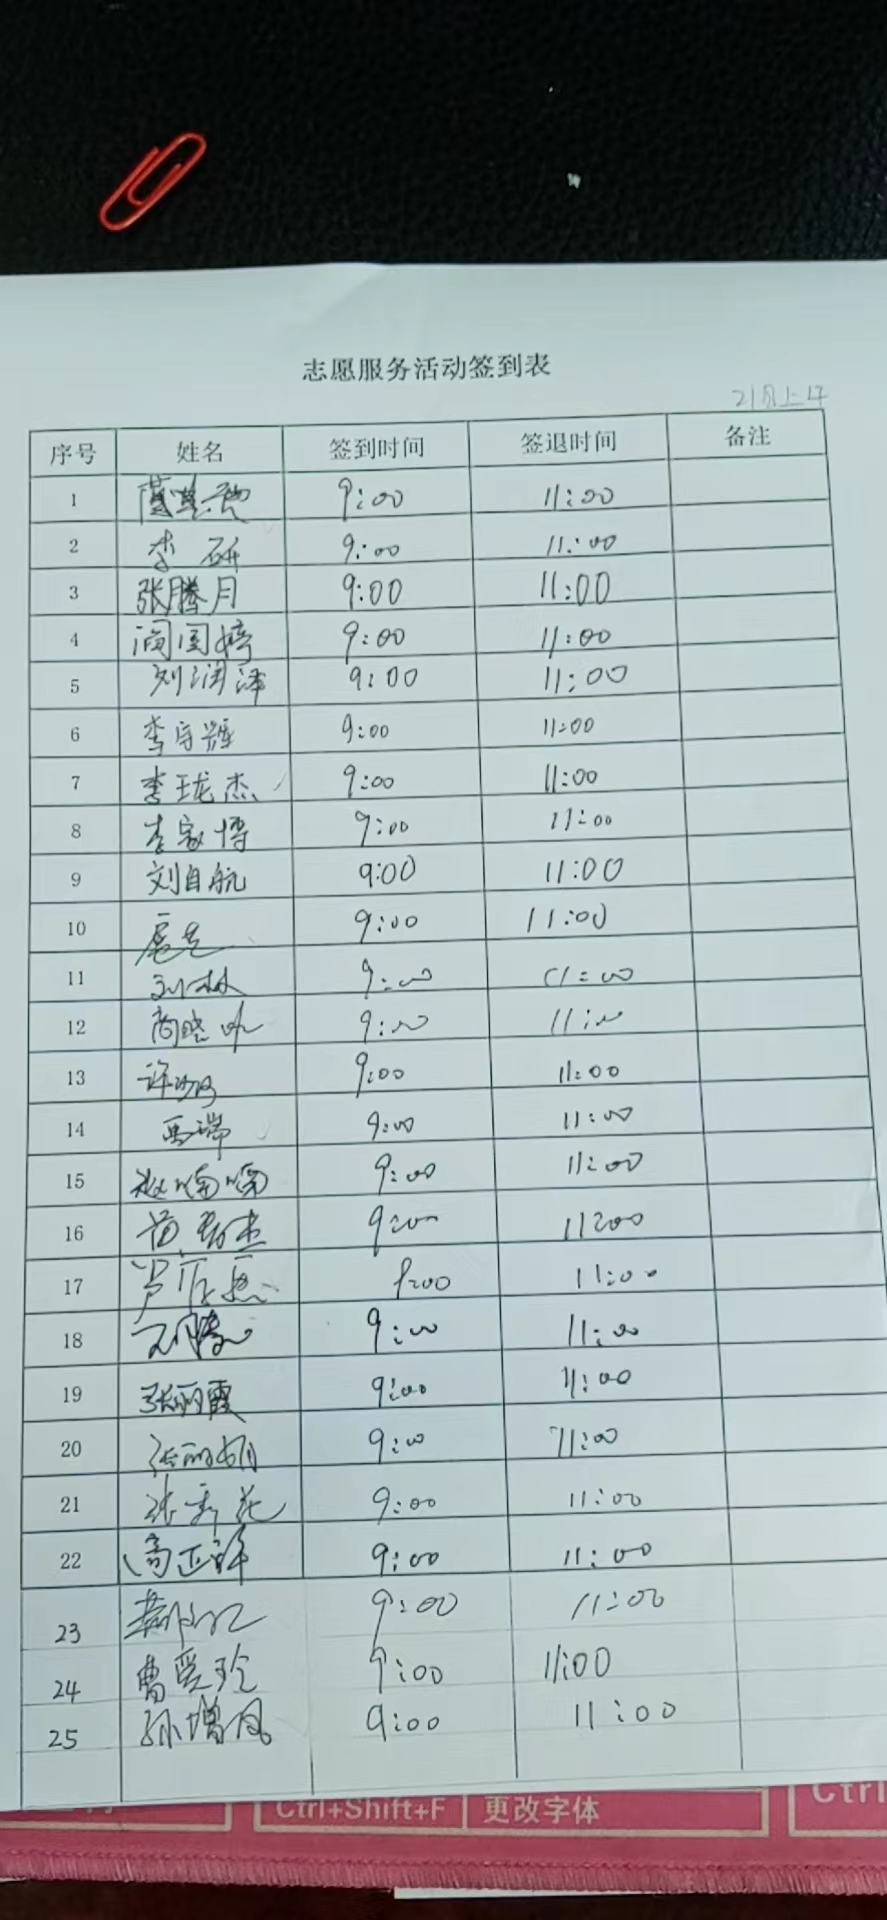 志愿服务活动签到表
21日上午
序号 姓名 签到时间 签退时间 备注
1 9:00 11:00
2 李研 9:00 11:00
3 张腾月 9:00 11:00
4 9:00 11:00
5 刘润泽 9:00 11:00
6 李守辉 9:00 11:00
7 李珑杰 9:00 11:00
8 李家博 9:00 11:00
9 刘自航 9:00 11:00
10 9:00 11:00
11 刘林 9:00 11:00
12 尚晓 9:00 11:00
13 许 9:00 11:00
14 马瑞 9:00 11:00
15 赵喃喃 9:00 11:00
16 苗 杰 9:00 11:00
17 芦 9:00 11:00
18 9:00 11:00
19 张丽霞 9:00 11:00
20 张丽娟 9:00 11:00
21 张秀花 9:00 11:00
22 高亚 9:00 11:00
23 9:00 11:00
24 曹爱玲 9:00 11:00
25 孙增凤 9:00 11:00
Ctrl+Shift+F 更改字体 Ctrl